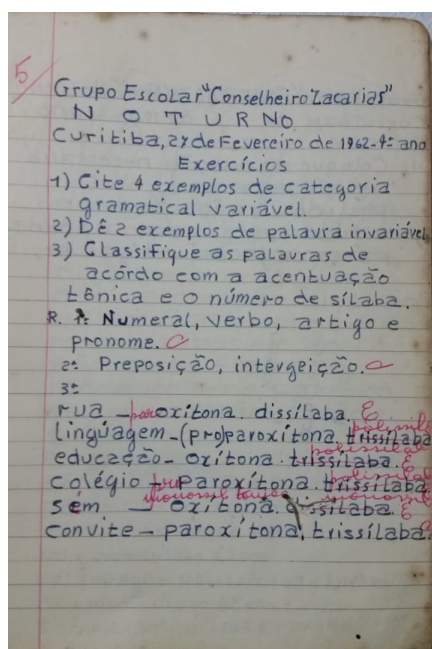 5
Grupo Escolar "Conselheiro Zacarias"
NOTURNO
Curitiba, 27 de Fevereiro de 1962-4º ano
Exercícios
1) Cite 4 exemplos de categoria
gramatical variável.
2) DÊ 2 exemplos de palavra invariável
3) Classifique as palavras de
acôrdo com a acentuação
tônica e o número de sílaba.
R. 1º Numeral, verbo, artigo e
pronome. C
2º Preposição, intergeição. C
3º
rua - paroxítona. dissílaba. E
polissílab
linguagem - (pro)paroxítona. trissílaba
polissílab
educação - oxítona. trissílaba. E
polissílab
colégio - paroxítona. trissílaba. E
monossil
sém - oxítona. dissílaba. E
convite - paroxítona. trissílaba.